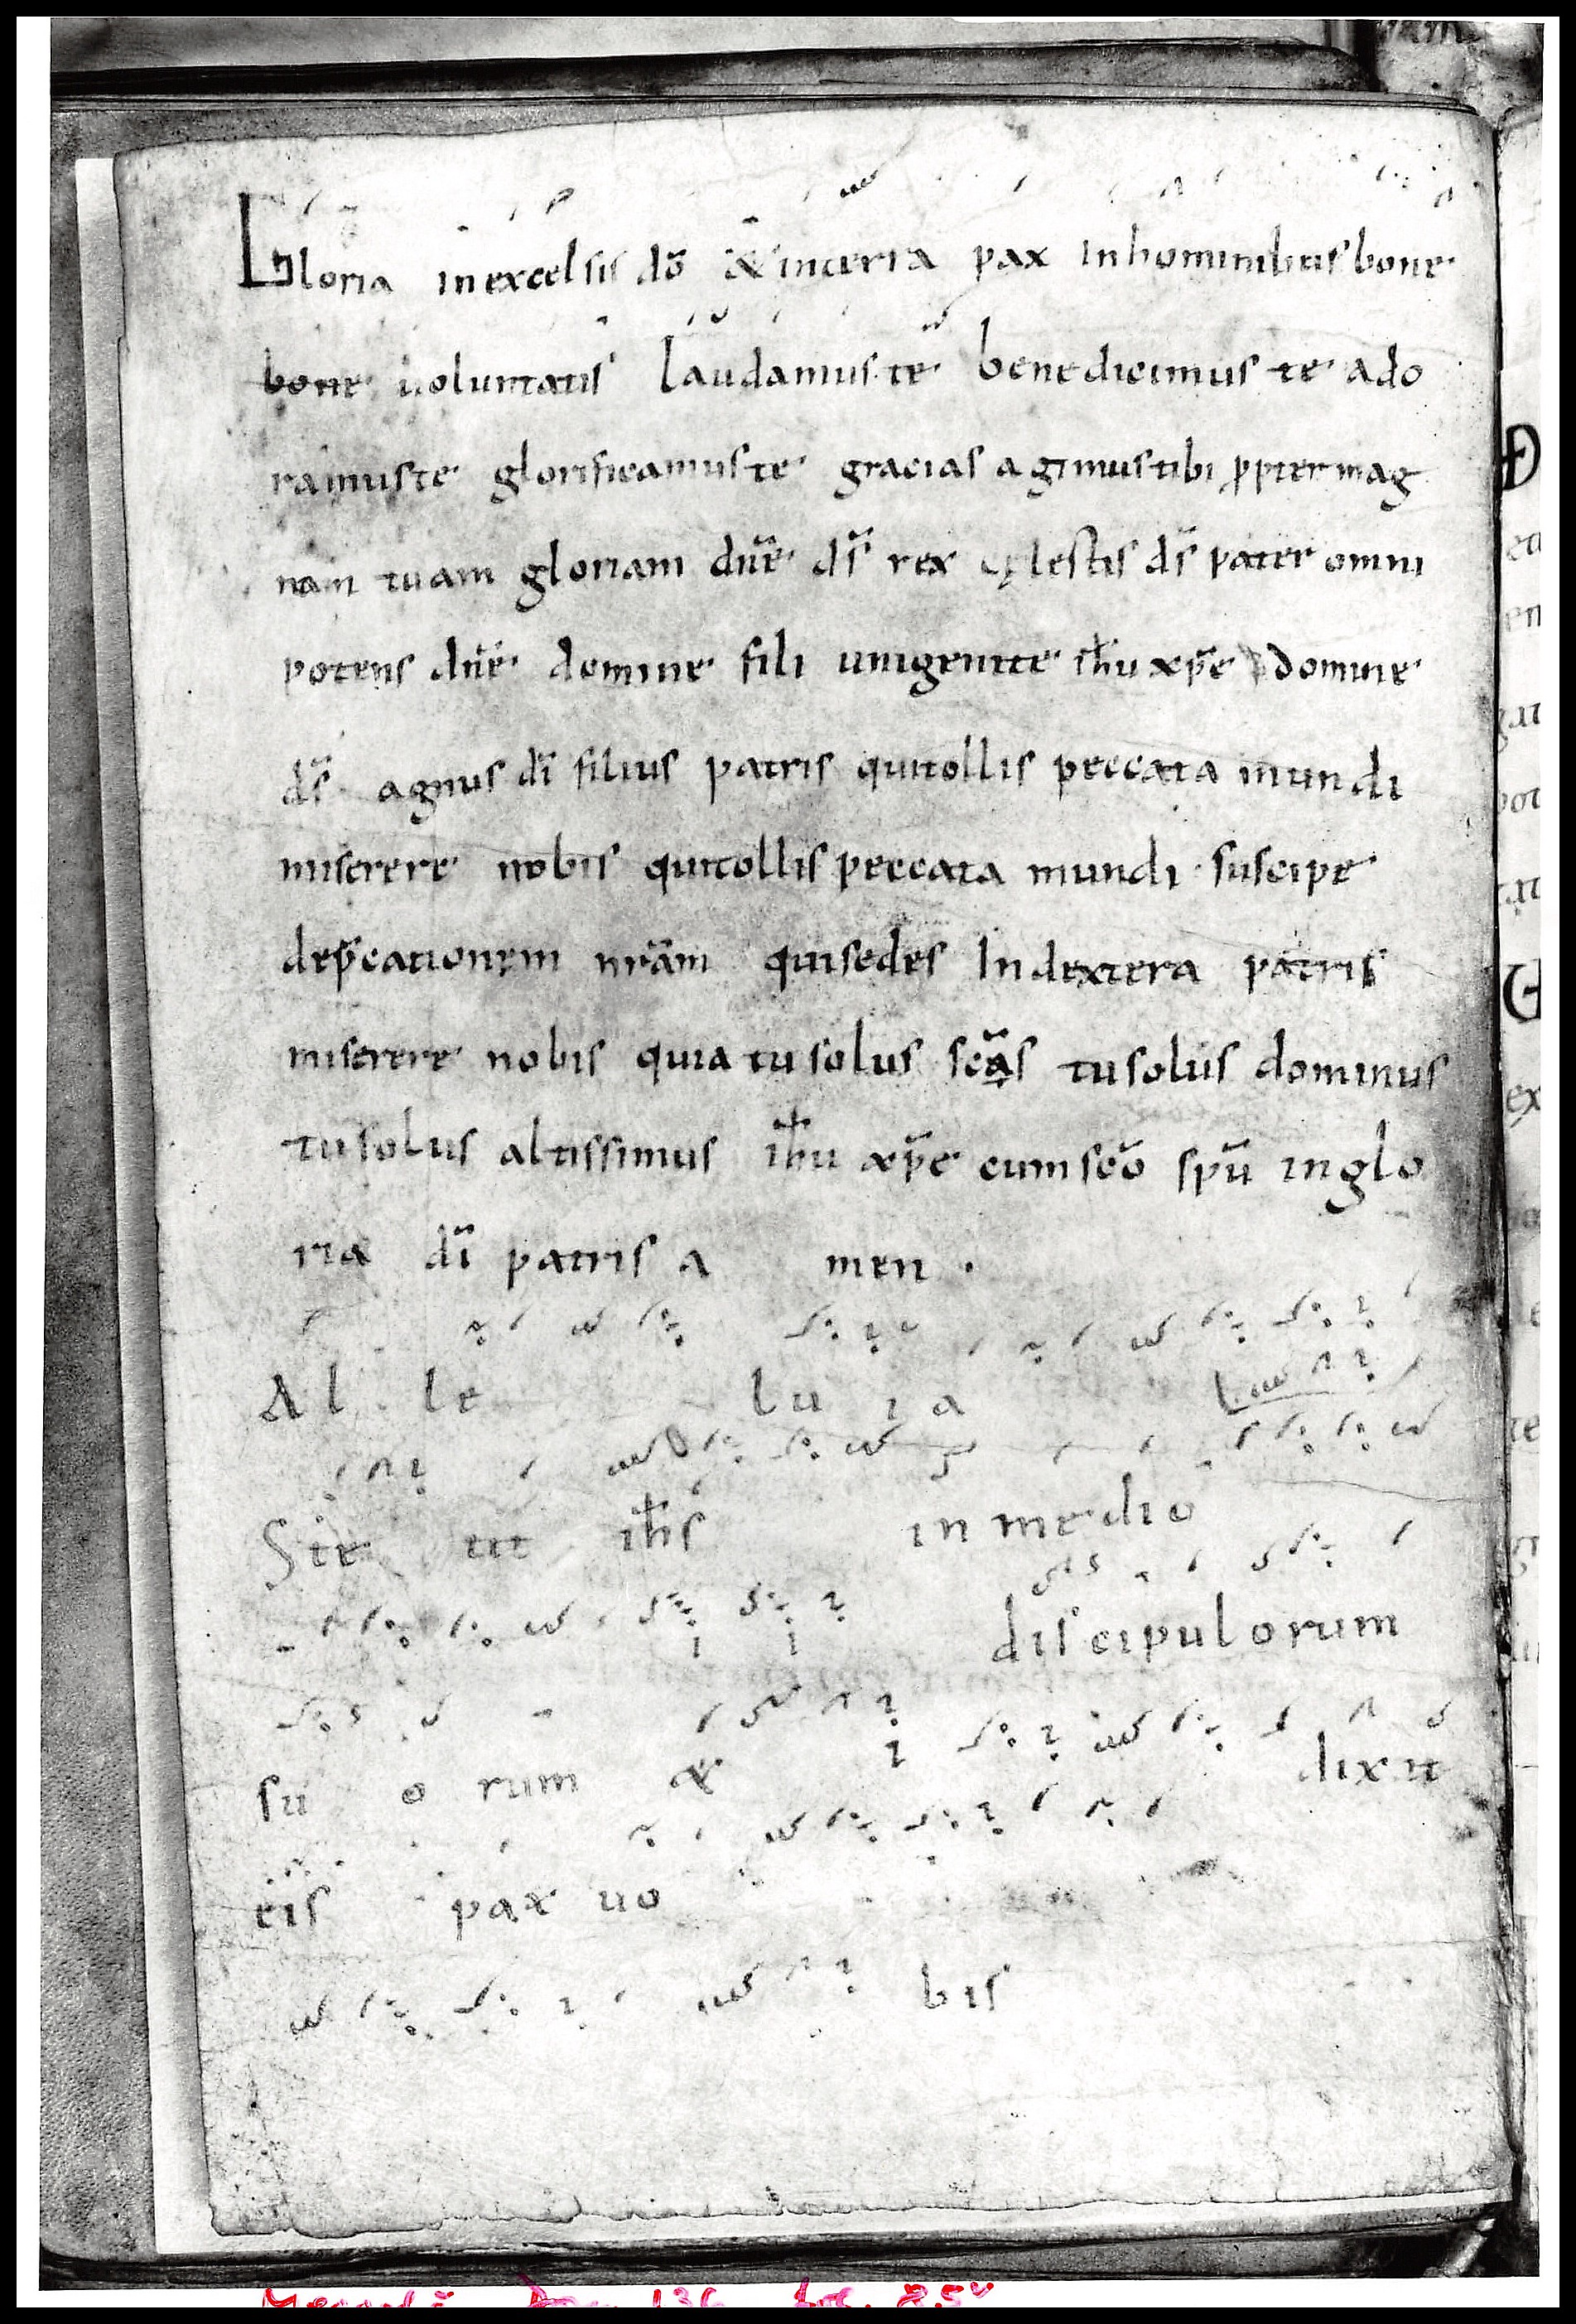 Gloria in excelsis dō & in terra pax in hominibus bone
bone uoluntatis laudamus te benedicimus te ado
ramus te glorificamus te gracias agimus tibi ꝓpter mag
nam tuam gloriam dn̄e ds̄ rex cęlestis ds̄ pater omni
potens dn̄e domine fili unigenite ih̄u xp̄e domine
ds̄ agnus dī filius patris qui tollis peccata mundi
miserere nobis qui tollis peccata mundi suscipe
dep̄cationem nr̄am qui sedes In dextera patris
miserere nobis quia tu solus sc̄s tu solus dominus
tu solus altissimus ih̄u xp̄e cum sc̄o sp̄u in glo
ria dī patris a men .
Al le lu ia
Ste tit ih̄s in medio
discipulorum
su o rum & dixit
eis pax uo
bis